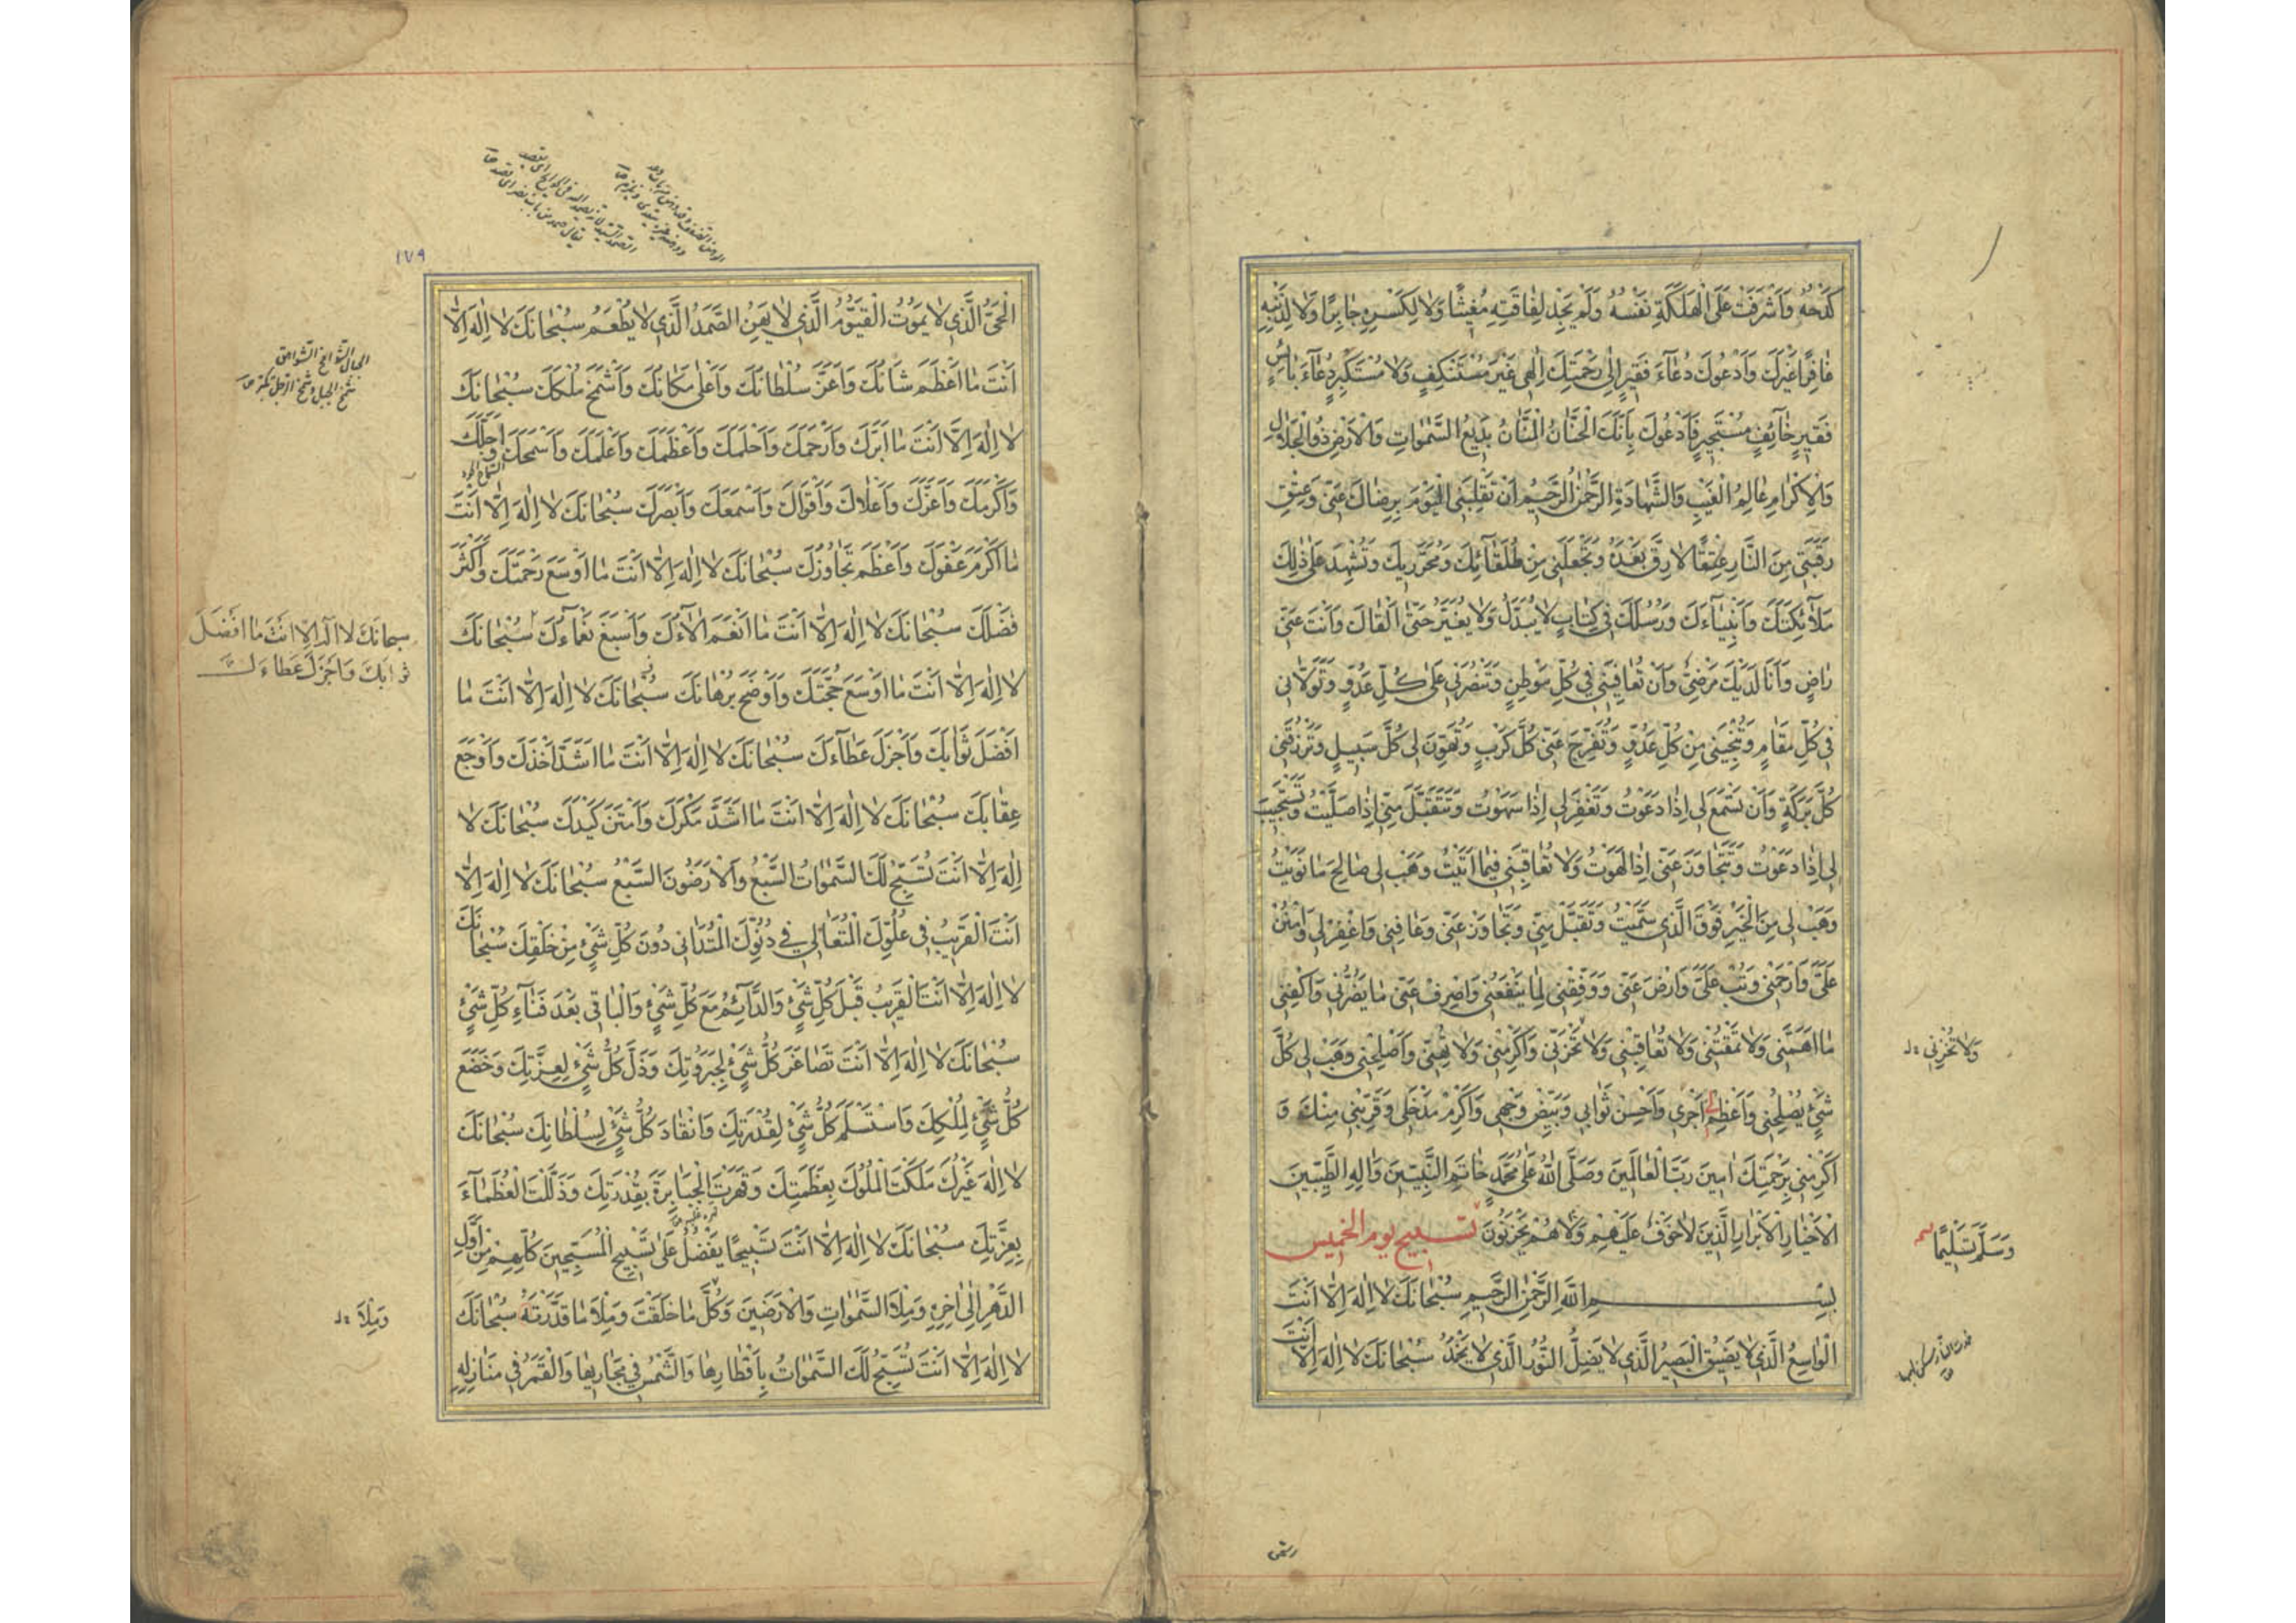 كَدْحُهُ وَاَشْرَفَتْ عَلَى الْهَلَكَةِ نَفْسُهُ وَلَمْ يَجِدْ لِفَاقَتِهِ مُغِيثًا وَلَا لِكَسْرِهِ جَابِرًا وَلَا لِذَنْبِهِ
غَافِرًا غَيْرَكَ وَاَدْعُوكَ دُعَآءَ فَقِيرٍ اِلَى رَحْمَتِكَ اِلٰهِي غَيْرَ مُسْتَنْكِفٍ وَلَا مُسْتَكْبِرٍ دُعَآءَ بَائِسٍ
فَقِيرٍ خَآئِفٍ مُسْتَجِيرٍ فَاَدْعُوكَ بِاَنَّكَ الْحَنَّانُ الْمَنَّانُ بَدِيعُ السَّمٰوَاتِ وَالْاَرْضِ ذُو الْجَلَالِ
وَالْاِكْرَامِ عَالِمُ الْغَيْبِ وَالشَّهَادَةِ الرَّحْمٰنُ الرَّحِيمُ اَنْ تَقْلِبَنِي الْيَوْمَ بِرِضَاكَ عَنِّي وَعِتْقِ
رَقَبَتِي مِنَ النَّارِ عِتْقًا لَا رِقَّ بَعْدَهُ وَتَجْعَلَنِي مِنْ طُلَقَآئِكَ وَمُحَرَّرِيكَ وَتُشْهِدَ عَلَى ذٰلِكَ
مَلَآئِكَتَكَ وَاَنْبِيَآءَكَ وَرُسُلَكَ فِي كِتَابٍ لَا يُبَدَّلُ وَلَا يُغَيَّرُ حَتَّى اَلْقَاكَ وَاَنْتَ عَنِّي
رَاضٍ وَاَنَا لَدَيْكَ مَرْضِيٌّ وَاَنْ تُعَافِيَنِي فِي كُلِّ مَوْطِنٍ وَتَنْصُرَنِي عَلَى كُلِّ عَدُوٍّ وَتَوَلَّانِي
فِي كُلِّ مَقَامٍ وَتُنْجِيَنِي مِنْ كُلِّ عَدُوٍّ وَتُفَرِّجَ عَنِّي كُلَّ كَرْبٍ وَتُهَوِّنَ لِي كُلَّ سَبِيلٍ وَتَرْزُقَنِي
كُلَّ بَرَكَةٍ وَاَنْ تَسْمَعَ لِي اِذَا دَعَوْتُ وَتَغْفِرَ لِي اِذَا سَهَوْتُ وَتَتَقَبَّلَ مِنِّي اِذَا صَلَّيْتُ وَتَسْتَجِيبَ
لِي اِذَا دَعَوْتُ وَتَتَجَاوَزَ عَنِّي اِذَا لَهَوْتُ وَلَا تُعَاقِبَنِي فِيمَا اَتَيْتُ وَهَبْ لِي صَالِحَ مَا نَوَيْتُ
وَهَبْ لِي مِنَ الْخَيْرِ فَوْقَ الَّذِي سَمَّيْتُ وَتَقَبَّلْ مِنِّي وَتَجَاوَزْ عَنِّي وَعَافِنِي وَاغْفِرْ لِي وَامْنُنْ
عَلَيَّ وَارْحَمْنِي وَتُبْ عَلَيَّ وَارْضَ عَنِّي وَوَفِّقْنِي لِمَا يَنْفَعُنِي وَاصْرِفْ عَنِّي مَا يَضُرُّنِي وَاكْفِنِي
مَا اَهَمَّنِي وَلَا تَمْقُتْنِي وَلَا تُعَاقِبْنِي وَلَا تُخْزِنِّي وَاَكْرِمْنِي وَلَا تُهِنِّي وَاَصْلِحْنِي وَهَبْ لِي كُلَّ
وَلَا تُخْزِنِي
شَيْءٍ يُصْلِحُنِي وَاَعْظِمْ لِي اَجْرِي وَاَحْسِنْ ثَوَابِي وَبَيِّضْ وَجْهِي وَاَكْرِمْ مَدْخَلِي وَقَرِّبْنِي مِنْكَ وَ
اَكْرِمْنِي بِرَحْمَتِكَ اٰمِينَ رَبَّ الْعَالَمِينَ وَصَلَّى اللّٰهُ عَلَى مُحَمَّدٍ خَاتَمِ النَّبِيِّينَ وَاٰلِهِ الطَّيِّبِينَ
الْاَخْيَارِ الْاَبْرَارِ الَّذِينَ لَا خَوْفٌ عَلَيْهِمْ وَلَا هُمْ يَحْزَنُونَ تسبيح يوم الخميس
وَسَلَّمَ تَسْلِيمًا
بِسْمِ اللّٰهِ الرَّحْمٰنِ الرَّحِيمِ سُبْحَانَكَ لَا اِلٰهَ اِلَّا اَنْتَ
الْوَاسِعُ الَّذِي لَا يَضِيقُ الْبَصِيرُ الَّذِي لَا يَضِلُّ النُّورُ الَّذِي لَا يَخْمَدُ سُبْحَانَكَ لَا اِلٰهَ اِلَّا اَنْتَ
١٧٩
الْحَيُّ الَّذِي لَا يَمُوتُ الْقَيُّومُ الَّذِي لَا يَهِنُ الصَّمَدُ الَّذِي لَا يُطْعَمُ سُبْحَانَكَ لَا اِلٰهَ اِلَّا
اَنْتَ مَا اَعْظَمَ شَاْنَكَ وَاَعَزَّ سُلْطَانَكَ وَاَعْلَى مَكَانَكَ وَاَشْمَخَ مُلْكَكَ سُبْحَانَكَ
لَا اِلٰهَ اِلَّا اَنْتَ مَا اَبَرَّكَ وَاَرْحَمَكَ وَاَحْلَمَكَ وَاَعْظَمَكَ وَاَعْلَمَكَ وَاَسْمَحَكَ وَاَجَلَّكَ
وَاَكْرَمَكَ وَاَعَزَّكَ وَاَعْلَاكَ وَاَقْوَاكَ وَاَسْمَعَكَ وَاَبْصَرَكَ سُبْحَانَكَ لَا اِلٰهَ اِلَّا اَنْتَ
مَا اَكْرَمَ عَفْوَكَ وَاَعْظَمَ تَجَاوُزَكَ سُبْحَانَكَ لَا اِلٰهَ اِلَّا اَنْتَ مَا اَوْسَعَ رَحْمَتَكَ وَاَكْثَرَ
فَضْلَكَ سُبْحَانَكَ لَا اِلٰهَ اِلَّا اَنْتَ مَا اَنْعَمَ اٰلَآءَكَ وَاَسْبَغَ نَعْمَآءَكَ سُبْحَانَكَ
سبحانَكَ لا اله الا انْتَ مَا اَفْضَلَ
ثوابَكَ وَاَجْزَلَ عَطَاءَكَ
لَا اِلٰهَ اِلَّا اَنْتَ مَا اَوْسَعَ حُجَّتَكَ وَاَوْضَحَ بُرْهَانَكَ سُبْحَانَكَ لَا اِلٰهَ اِلَّا اَنْتَ مَا
اَفْضَلَ ثَوَابَكَ وَاَجْزَلَ عَطَآءَكَ سُبْحَانَكَ لَا اِلٰهَ اِلَّا اَنْتَ مَا اَشَدَّ اَخْذَكَ وَاَوْجَعَ
عِقَابَكَ سُبْحَانَكَ لَا اِلٰهَ اِلَّا اَنْتَ مَا اَشَدَّ مَكْرَكَ وَاَمْتَنَ كَيْدَكَ سُبْحَانَكَ لَا
اِلٰهَ اِلَّا اَنْتَ تُسَبِّحُ لَكَ السَّمٰوَاتُ السَّبْعُ وَالْاَرَضُونَ السَّبْعُ سُبْحَانَكَ لَا اِلٰهَ اِلَّا
اَنْتَ الْقَرِيبُ فِي عُلُوِّكَ الْمُتَعَالِي فِي دُنُوِّكَ الْمُتَدَانِي دُونَ كُلِّ شَيْءٍ مِنْ خَلْقِكَ سُبْحَانَكَ
لَا اِلٰهَ اِلَّا اَنْتَ الْقَرِيبُ قَبْلَ كُلِّ شَيْءٍ وَالدَّآئِمُ مَعَ كُلِّ شَيْءٍ وَالْبَاقِي بَعْدَ فَنَآءِ كُلِّ شَيْءٍ
سُبْحَانَكَ لَا اِلٰهَ اِلَّا اَنْتَ تَصَاغَرَ كُلُّ شَيْءٍ لِجَبَرُوتِكَ وَذَلَّ كُلُّ شَيْءٍ لِعِزَّتِكَ وَخَضَعَ
كُلُّ شَيْءٍ لِمُلْكِكَ وَاسْتَسْلَمَ كُلُّ شَيْءٍ لِقُدْرَتِكَ وَانْقَادَ كُلُّ شَيْءٍ لِسُلْطَانِكَ سُبْحَانَكَ
لَا اِلٰهَ غَيْرُكَ مَلَكْتَ الْمُلُوكَ بِعَظَمَتِكَ وَقَهَرْتَ الْجَبَابِرَةَ بِقُدْرَتِكَ وَذَلَّلْتَ الْعُظَمَآءَ
بِعِزَّتِكَ سُبْحَانَكَ لَا اِلٰهَ اِلَّا اَنْتَ تَسْبِيحًا يَفْضُلُ عَلَى تَسْبِيحِ الْمُسَبِّحِينَ كُلِّهِمْ مِنْ اَوَّلِ
الدَّهْرِ اِلَى اٰخِرِهِ وَمِلْاَ السَّمٰوَاتِ وَالْاَرَضِينَ وَكُلِّ مَا خَلَقْتَ وَمِلْاَ مَا قَدَّرْتَهُ سُبْحَانَكَ
وَمِلْاَ
لَا اِلٰهَ اِلَّا اَنْتَ تُسَبِّحُ لَكَ السَّمٰوَاتُ بِاَقْطَارِهَا وَالشَّمْسُ فِي مَجَارِيهَا وَالْقَمَرُ فِي مَنَازِلِهِ